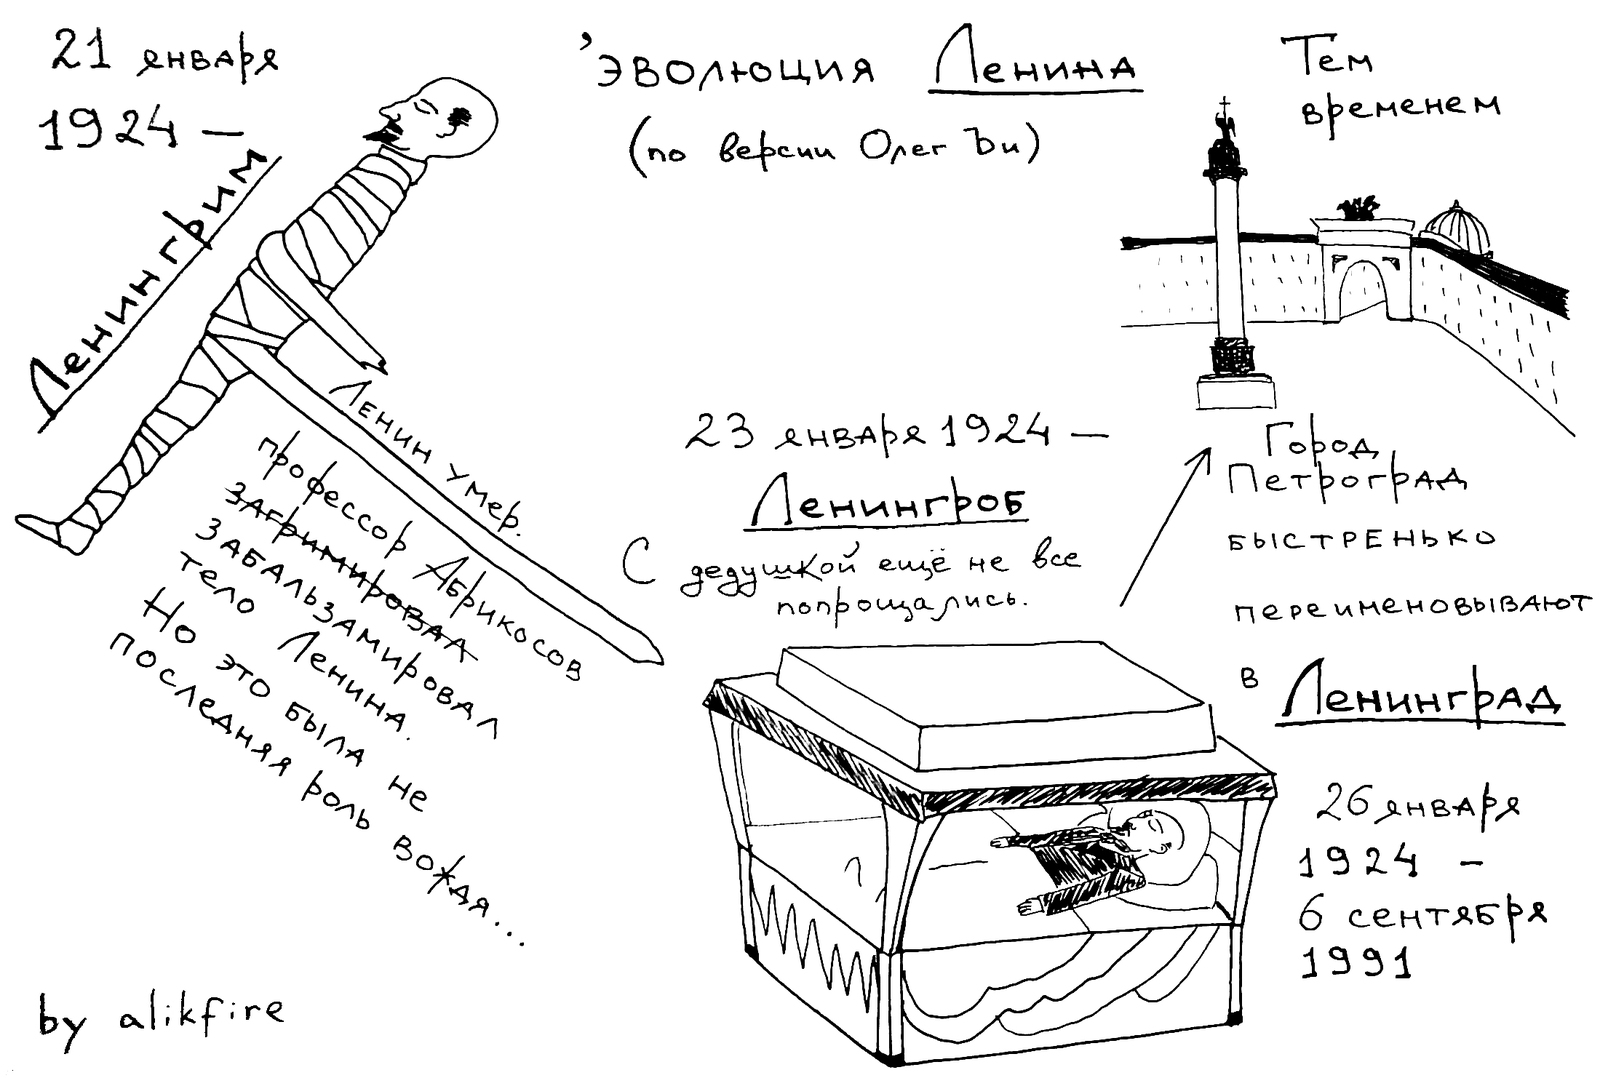 21 января
1924 —
Ленингрим
Ленин умер.
профессор Абрикосов
загримировал
забальзамировал
тело Ленина.
Но это была не
последняя роль вождя...
Эволюция Ленина
(по версии Олег Ъи)
23 января 1924 —
Ленингроб
С дедушкой ещё не все
попрощались.
Тем
временем
Город
Петроград
быстренько
переименовывают
в Ленинград
26 января
1924 —
6 сентября
1991
by alikfire